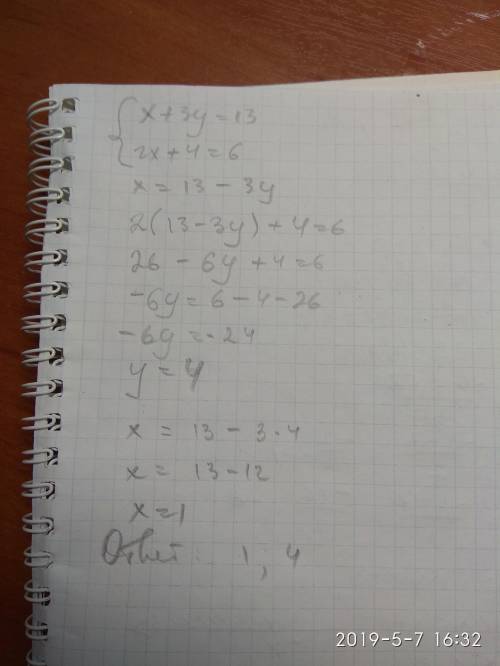 x+3y=13
2x+4=6
x=13-3y
2(13-3y)+4=6
26-6y+4=6
-6y=6-4-26
-6y=-24
y=4
x=13-3·4
x=13-12
x=1
Ответ: 1; 4
2019-5-7 16:32